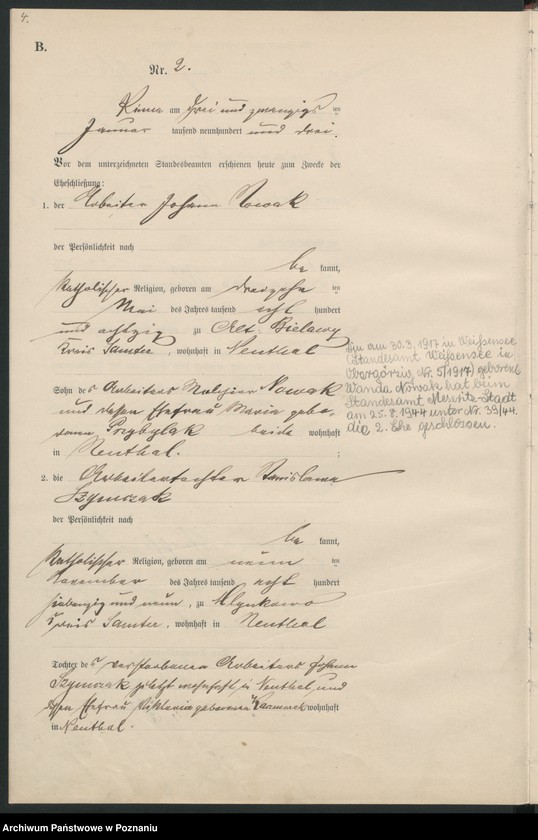 4.
B.
Nr. 2.
am drei und zwanzigs ten
Januar tausend neunhundert und drei.
Vor dem unterzeichneten Standesbeamten erschienen heute zum Zwecke der
Eheschließung:
1. der Arbeiter Johann Nowak
der Persönlichkeit nach
be kannt,
katholischer Religion, geboren am dreizehn ten
Mai des Jahres tausend acht hundert
und achtzig zu Alt. Bielawy
Kreis Samter, wohnhaft in Neuthal
Sohn des Arbeiters Melchior Nowak
und dessen Ehefrau Maria gebo-
renen Przybylak beide wohnhaft
in Neuthal. ;
2. die Arbeitertochter Stanislawa
Szymczak
der Persönlichkeit nach
be kannt,
katholischer Religion, geboren am neun ten
November des Jahres tausend acht hundert
siebenzig und neun, zu
Kreis Samter, wohnhaft in Neuthal
Tochter des verstorbenen Arbeiters Johann
Szymczak zuletzt wohnhaft in Neuthal und
dessen Ehefrau Viktoria geborenen wohnhaft
in Neuthal.
Die am 30.3.1917 in Weißensee
(Standesamt Weißensee in
Obergörzig, Nr. 5/1917) geborene
Wanda Nowak hat beim
Standesamt Meseritz-Stadt
am 25.8.1944 unter Nr. 39/44.
die 2. Ehe geschlossen.
Archiwum Państwowe w Poznaniu